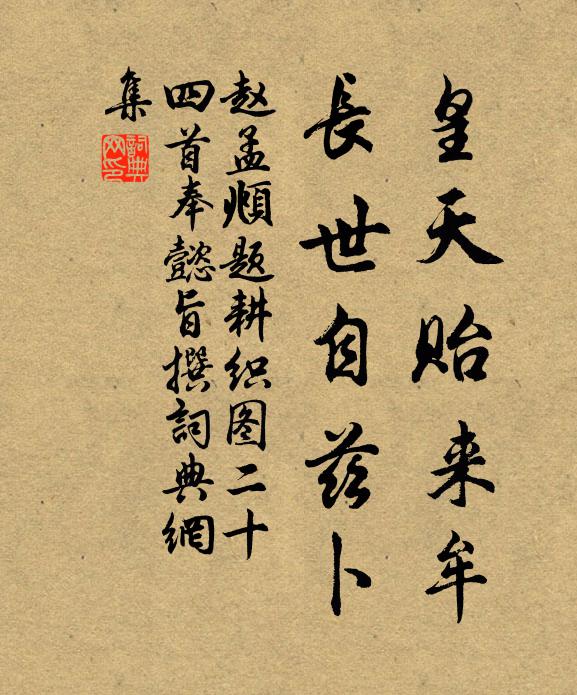 皇天贻来牟
長世自兹卜
赵孟頫题耕织图二十
四首奉懿旨撰詞典網
集
詞典網印